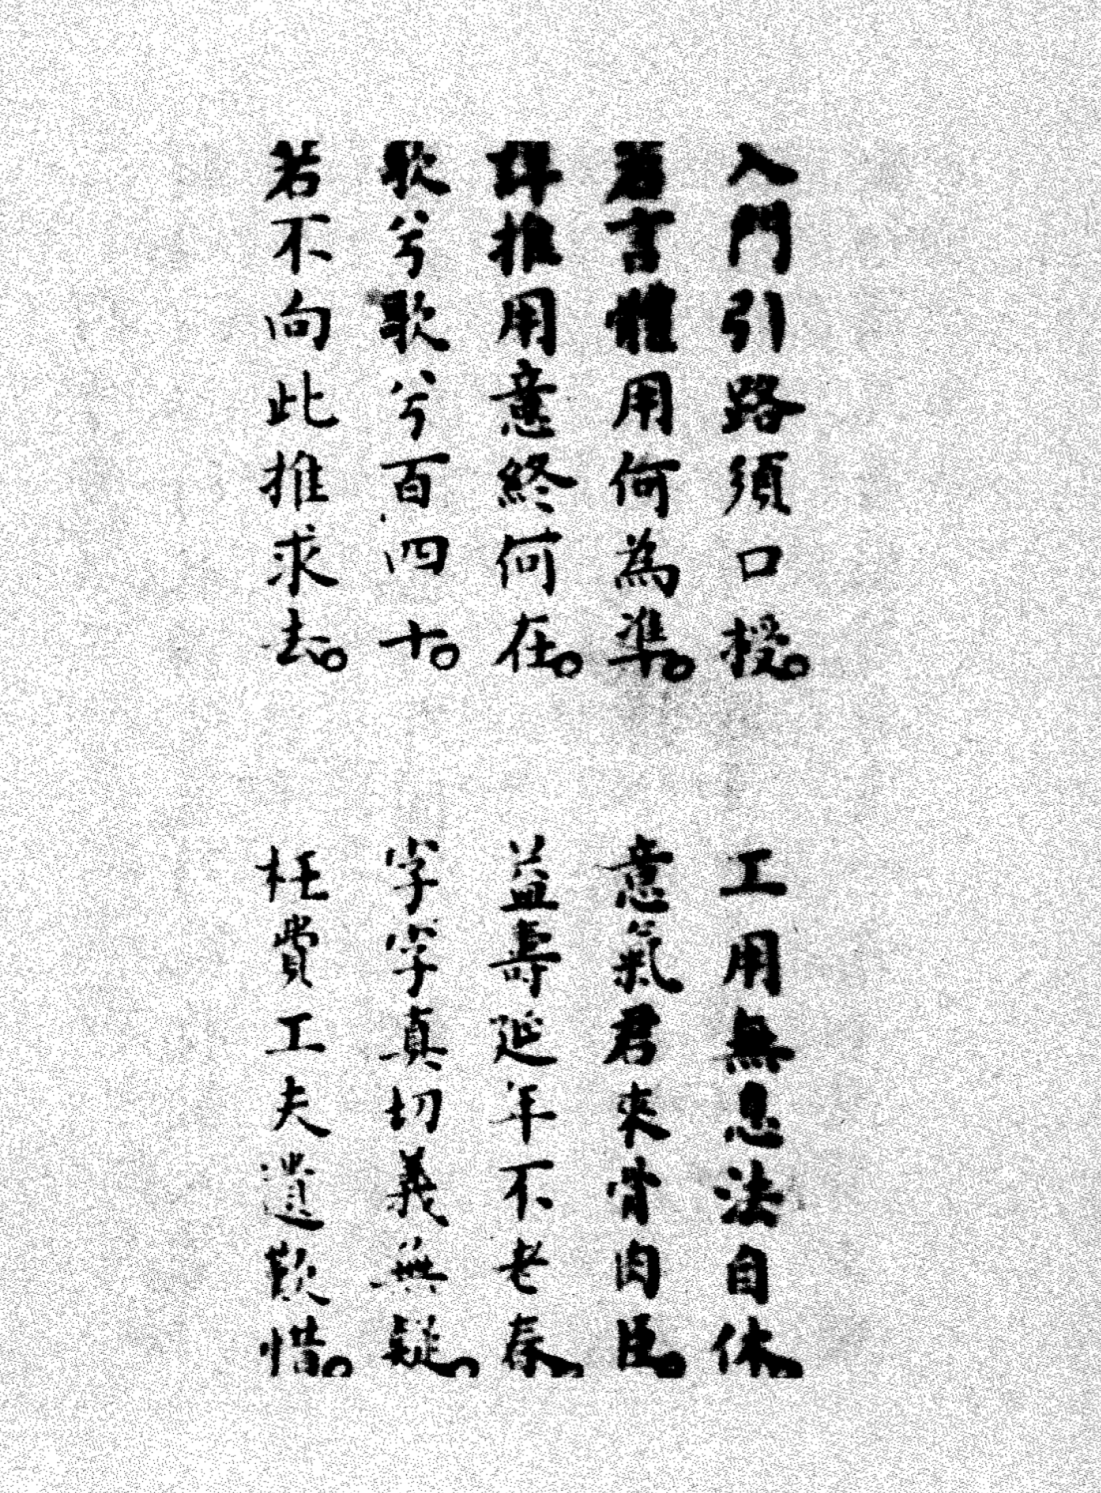 入門引路須口授。
工用無息法自休。
若言體用何為準。
意氣君來骨肉臣。
詳推用意終何在。
益壽延年不老春。
歌兮歌兮百四十。
字字真切義無疑。
若不向此推求去。
枉費工夫遺歎惜。